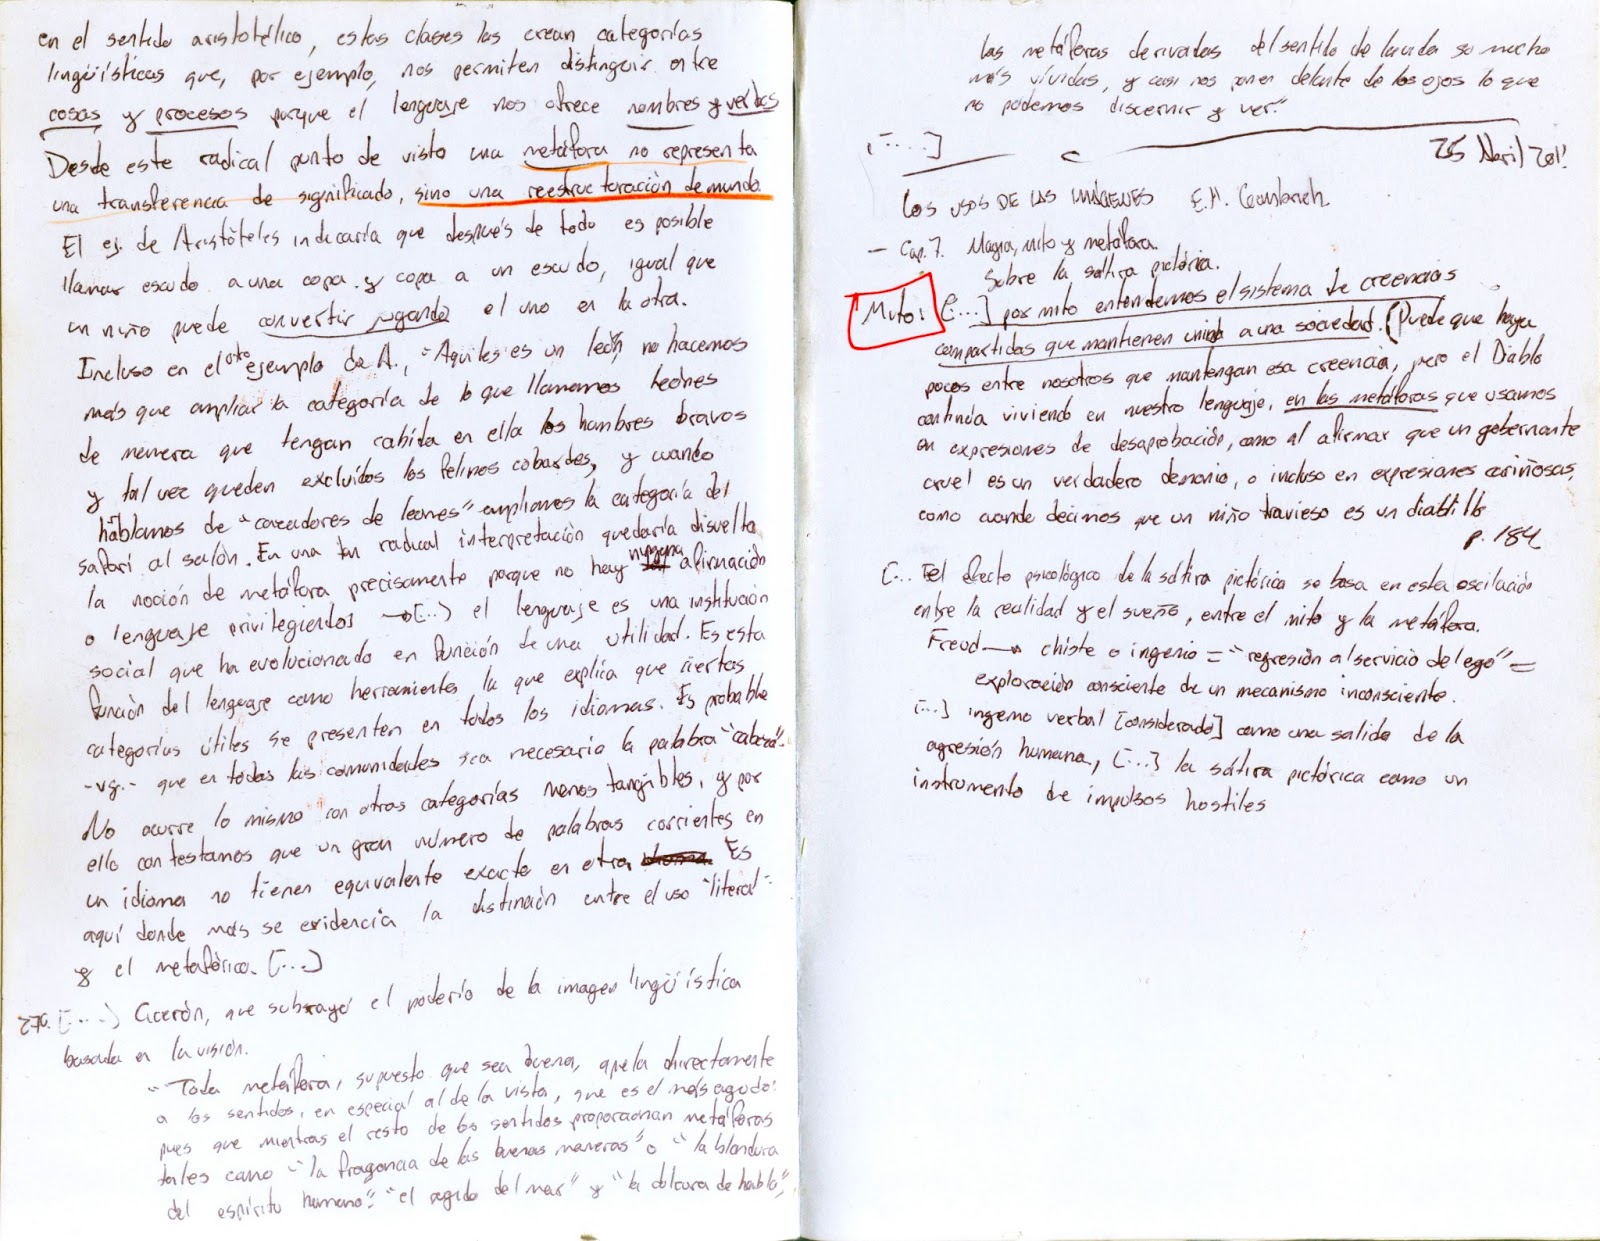 en el sentido aristotélico, estas clases las crean categorías
lingüísticas que, por ejemplo, nos permiten distinguir entre
cosas y procesos porque el lenguaje nos ofrece nombres y verbos
Desde este radical punto de visto una metáfora no representa
una transferencia de significado, sino una reestructuración de mundo.
El ej. de Aristóteles indicaría que después de todo es posible
llamar escudo a una copa y copa a un escudo, igual que
un niño puede convertir jugando el uno en la otra.
Incluso en el otro ejemplo de A., "Aquiles es un león, no hacemos
más que ampliar la categoría de lo que llamamos leones
de manera que tengan cabida en ella los hombres bravos
y tal vez queden excluidos los felinos cobardes, y cuando
hablamos de "cazadores de leones" ampliamos la categoría del
safari al salón. En una tan radical interpretación quedaría disuelta
la noción de metáfora precisamente porque no hay ninguna afirmación
o lenguaje privilegiados → [...] el lenguaje es una institución
social que ha evolucionado en función de una utilidad. Es esta
función del lenguaje como herramienta la que explica que ciertas
categorías útiles se presenten en todos los idiomas. Es probable
-vg.- que en todas las comunidades sea necesaria la palabra "cabeza".
No ocurre lo mismo con otras categorías menos tangibles, y por
ello contestamos que un gran número de palabras corrientes en
un idioma no tienen equivalente exacto en otro. Es
aquí donde más se evidencia la distinción entre el uso "literal"
y el metafórico. [...]
[...] Cicerón, que subrayó el poderío de la imagen lingüística
basada en la visión.
"Toda metáfora, supuesto que sea buena, apela directamente
a los sentidos, en especial al de la vista, que es el más agudo:
pues que mientras el resto de los sentidos proporcionan metáforas
tales como "la fragancia de las buenas maneras" o "la blandura
del espíritu humano" "el rugido del mar" y "la dulzura de habla",
las metáforas derivadas del sentido de la vida so mucho
más vívidas, y casi nos ponen delante de los ojos lo que
no podemos discernir y ver."
[....]
25 Abril 2011
LOS USOS DE LAS IMÁGENES E.H. Gombrich.
- Cap. 7. Magia, mito y metáfora.
Sobre la sátira pictórica.
Mito: [...] por mito entendemos el sistema de creencias
compartidas que mantienen unida a una sociedad. (Puede que haya
pocos entre nosotros que mantengan esa creencia, pero el Diablo
continúa viviendo en nuestro lenguaje, en las metáforas que usamos
en expresiones de desaprobación, como al afirmar que un gobernante
cruel es un verdadero demonio, o incluso en expresiones cariñosas,
como cuando decimos que un niño travieso es un diablillo
p. 184
[... El efecto psicológico de la sátira pictórica se basa en esta oscilación
entre la realidad y el sueño, entre el mito y la metáfora.
Freud → chiste o ingenio = "regresión al servicio del ego" =
exploración consciente de un mecanismo inconsciente.
[...] ingenio verbal [considerado] como una salida de la
agresión humana, [...] la sátira pictórica como un
instrumento de impulsos hostiles